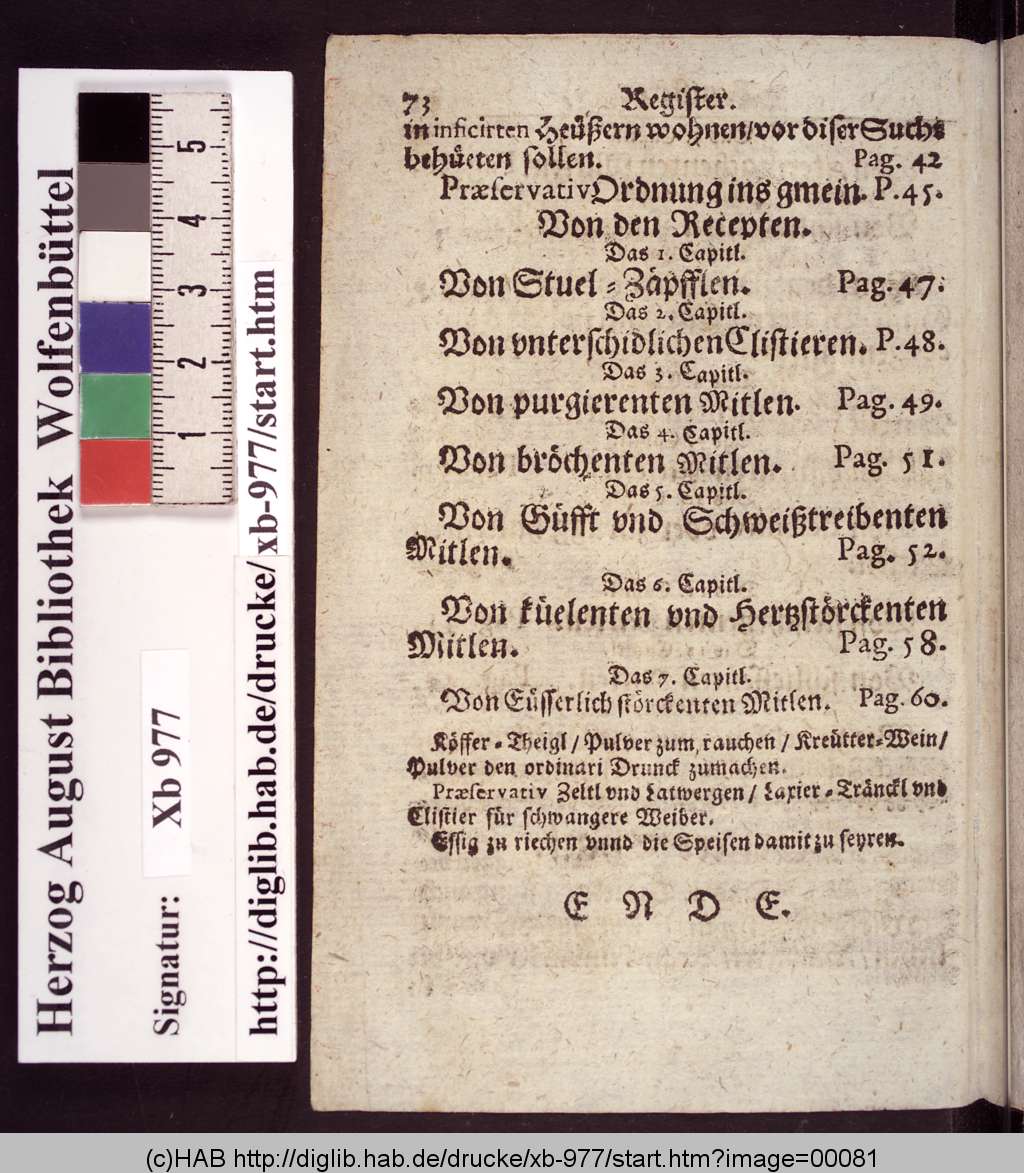 Herzog August Bibliothek Wolfenbüttel
Signatur: Xb 977
http://diglib.hab.de/drucke/xb-977/start.htm
5
4
3
2
1
73 Register.
in inficirten Heüßern wohnen/vor diser Suche
behüeten sollen. Pag. 42
Præservativ Ordnung ins gmein. P.45.
Von den Recepten.
Das 1. Capitl.
Von Stuel-Zäpfflen. Pag.47.
Das 2. Capitl.
Von vnterschidlichen Clistieren. P.48.
Das 3. Capitl.
Von purgierenten Mitlen. Pag. 49.
Das 4. Capitl.
Von bröchenten Mitlen. Pag. 51.
Das 5. Capitl.
Von Güfft vnd Schweißtreibenten
Mitlen. Pag. 52.
Das 6. Capitl.
Von küelenten vnd Hertzstörckenten
Mitlen. Pag. 58.
Das 7. Capitl.
Von Eüsserlich störckenten Mitlen. Pag.60.
Köffer-Theigl/Pulver zum rauchen/Kreütter-Wein/
Pulver den ordinari Drunck zumachen.
Præservativ Zeltl vnd Latwergen/Laxier-Tränckl vnd
Clistier für schwangere Weiber.
Essig zu riechen vnnd die Speisen damit zu seyren.
E N D E.
(c)HAB http://diglib.hab.de/drucke/xb-977/start.htm?image=00081